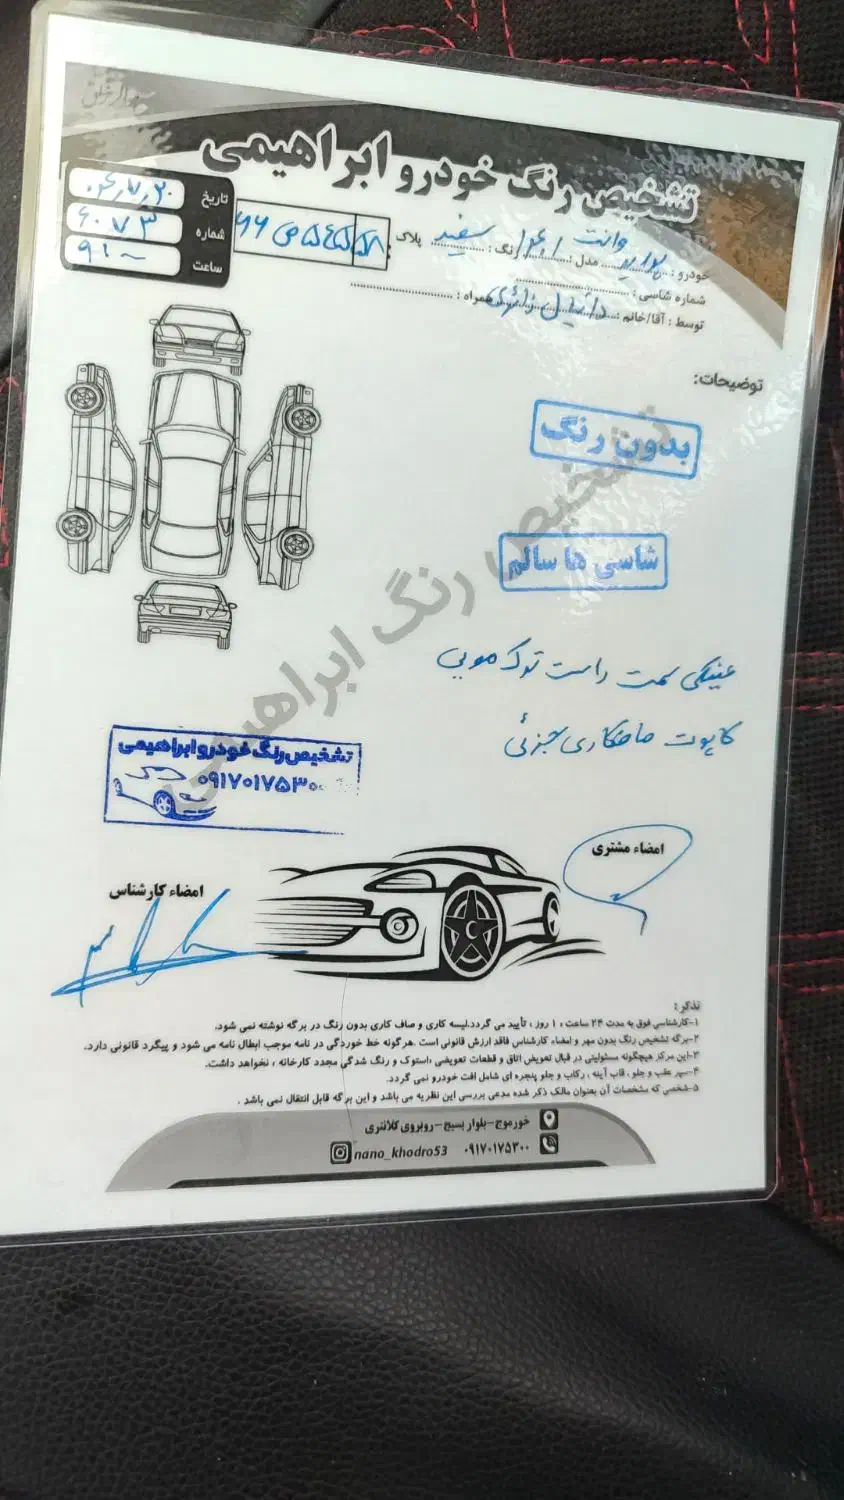 تشخیص رنگ خودرو ابراهیمی
تاریخ
شماره ۶۰۷۳
ساعت
خودرو : وانت مدل : رنگ : سفید پلاک
شماره شاسی :
توسط : آقا/خانم : دانیال همراه :
توضیحات:
بدون رنگ
شاسی ها سالم
تشخیص رنگ ابراهیمی
عینکی سمت راست ترک مویی
کاپوت صافکاری جزئی
تشخیص رنگ خودرو ابراهیمی
۰۹۱۷۰۱۷۵۳۰۰
امضاء مشتری
امضاء کارشناس
تذکر :
۱-کارشناسی فوق به مدت ۲۴ ساعت ، ۱ روز ، تأیید می گردد.لیسه کاری و صاف کاری بدون رنگ در برگه نوشته نمی شود.
۲-برگه تشخیص رنگ بدون مهر و امضاء کارشناس فاقد ارزش قانونی است .هرگونه خط خوردگی در نامه موجب ابطال نامه می شود و پیگرد قانونی دارد.
۳-این مرکز هیچگونه مسئولیتی در قبال تعویض اتاق و قطعات تعویضی ،استوک و رنگ شدگی مجدد کارخانه ، نخواهد داشت.
۴-سپر عقب و جلو ، قاب آینه ، رکاب و جلو پنجره ای شامل افت خودرو نمی گردد.
۵-شخصی که مشخصات آن بعنوان مالک ذکر شده مدعی بررسی این نظریه می باشد و این برگه قابل انتقال نمی باشد .
خورموج-بلوار بسیج-روبروی کلانتری
۰۹۱۷۰۱۷۵۳۰۰ nano_khodro53